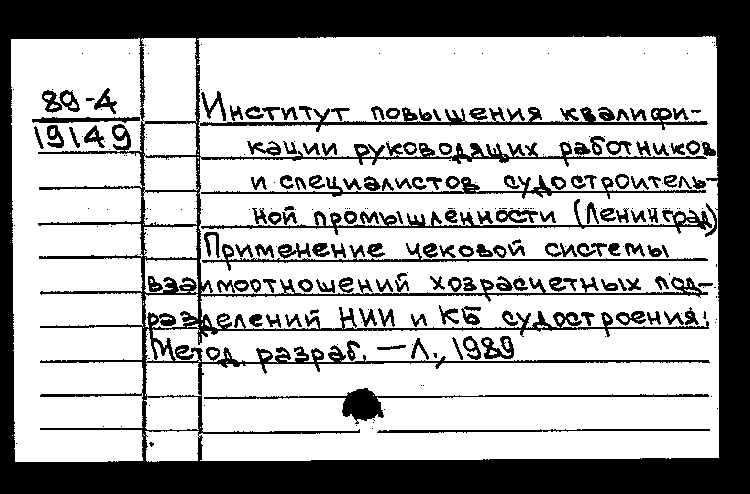 89-4
19149
Институт повышения квалифи-
кации руководящих работников
и специалистов судостроитель-
ной промышленности (Ленинград)
Применение чековой системы
взаимоотношений хозрасчетных под-
разделений НИИ и КБ судостроения:
Метод. разраб. — Л., 1989